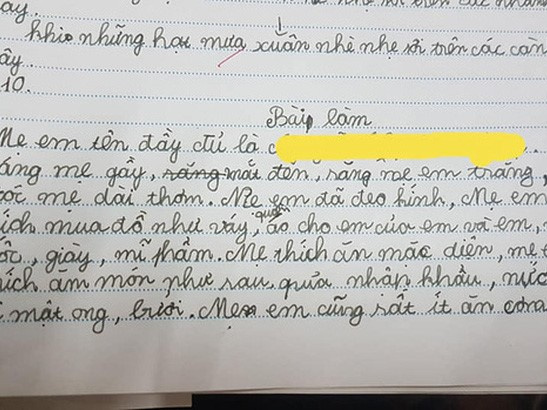 ay.
khi những hạt mưa xuân nhè nhẹ rơi trên các càn
ây.
10.
Bài làm
Mẹ em tên đầy đủ là c
áng mẹ gầy, răng mắt đen, răng mẹ em trắng,
óc mẹ dài thơm. Mẹ em đã đeo kính, Mẹ em
ích mua đồ như váy, quần áo cho em của em và em,
ốc, giày, mĩ phẩm. Mẹ thích ăn mặc diện, mẹ t
hích ăm món như rau quửa nhập khẩu, nước
mật ong, bưởi. Mẹ em cũng rất ít ăn cơm